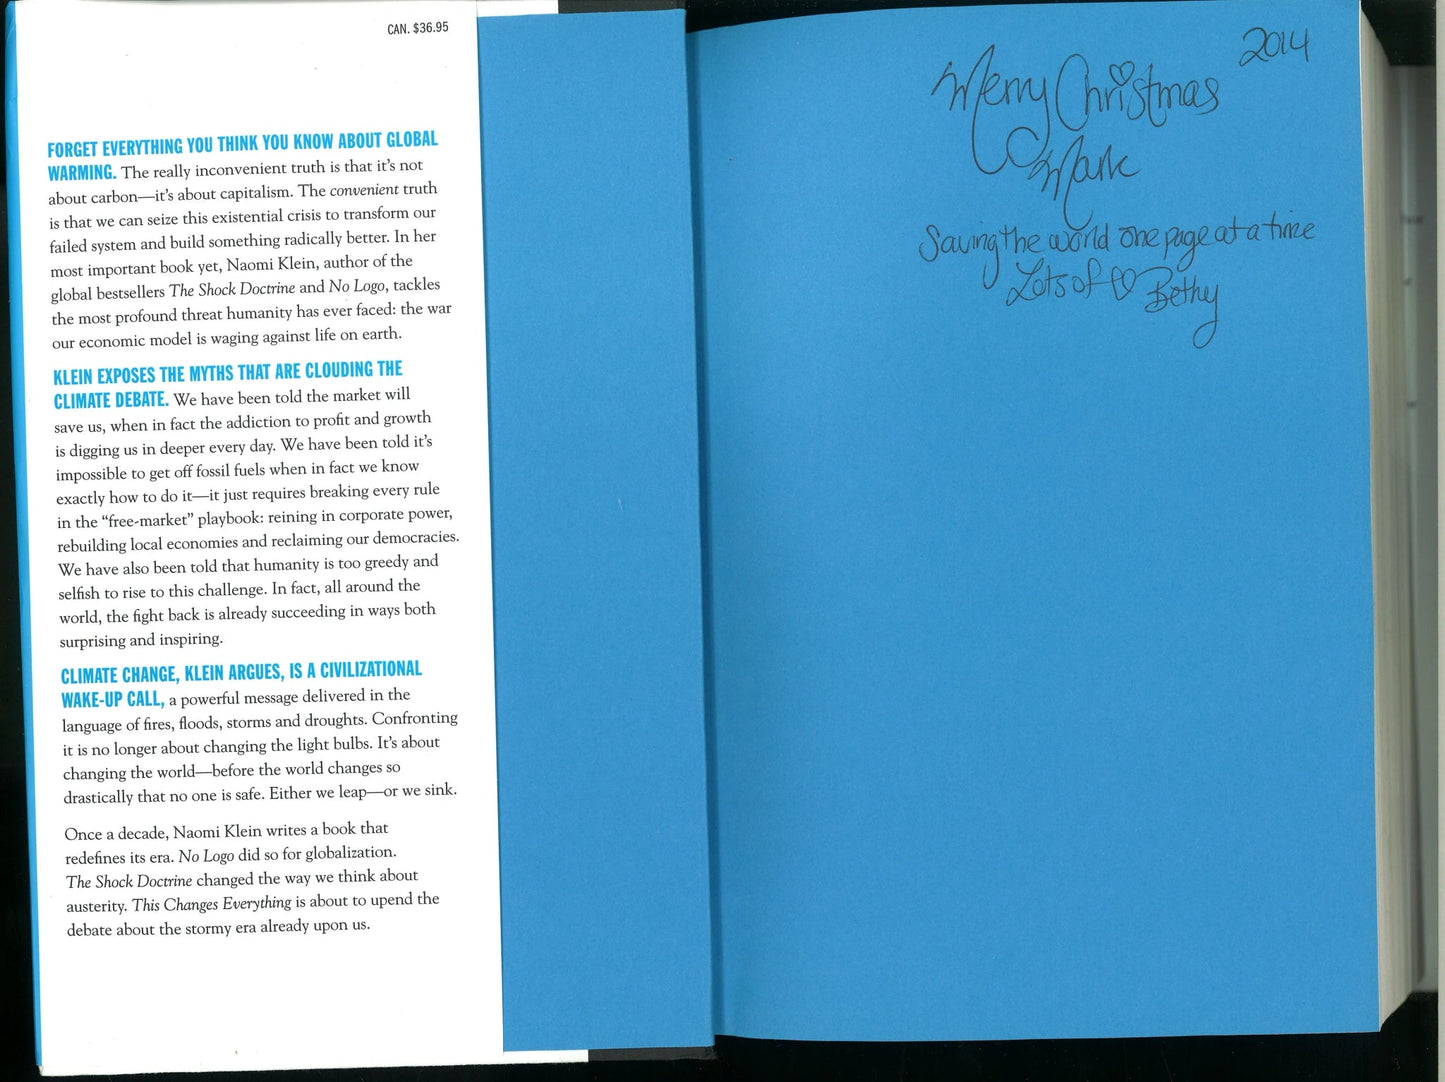 CAN. $36.95
FORGET EVERYTHING YOU THINK YOU KNOW ABOUT GLOBAL
WARMING. The really inconvenient truth is that it's not
about carbon—it's about capitalism. The convenient truth
is that we can seize this existential crisis to transform our
failed system and build something radically better. In her
most important book yet, Naomi Klein, author of the
global bestsellers The Shock Doctrine and No Logo, tackles
the most profound threat humanity has ever faced: the war
our economic model is waging against life on earth.
KLEIN EXPOSES THE MYTHS THAT ARE CLOUDING THE
CLIMATE DEBATE. We have been told the market will
save us, when in fact the addiction to profit and growth
is digging us in deeper every day. We have been told it's
impossible to get off fossil fuels when in fact we know
exactly how to do it—it just requires breaking every rule
in the “free-market” playbook: reining in corporate power,
rebuilding local economies and reclaiming our democracies.
We have also been told that humanity is too greedy and
selfish to rise to this challenge. In fact, all around the
world, the fight back is already succeeding in ways both
surprising and inspiring.
CLIMATE CHANGE, KLEIN ARGUES, IS A CIVILIZATIONAL
WAKE-UP CALL, a powerful message delivered in the
language of fires, floods, storms and droughts. Confronting
it is no longer about changing the light bulbs. It's about
changing the world—before the world changes so
drastically that no one is safe. Either we leap—or we sink.
Once a decade, Naomi Klein writes a book that
redefines its era. No Logo did so for globalization.
The Shock Doctrine changed the way we think about
austerity. This Changes Everything is about to upend the
debate about the stormy era already upon us.
2014
Merry Christmas
Mark
Saving the world one page at a time
Lots of ♡ Bethy